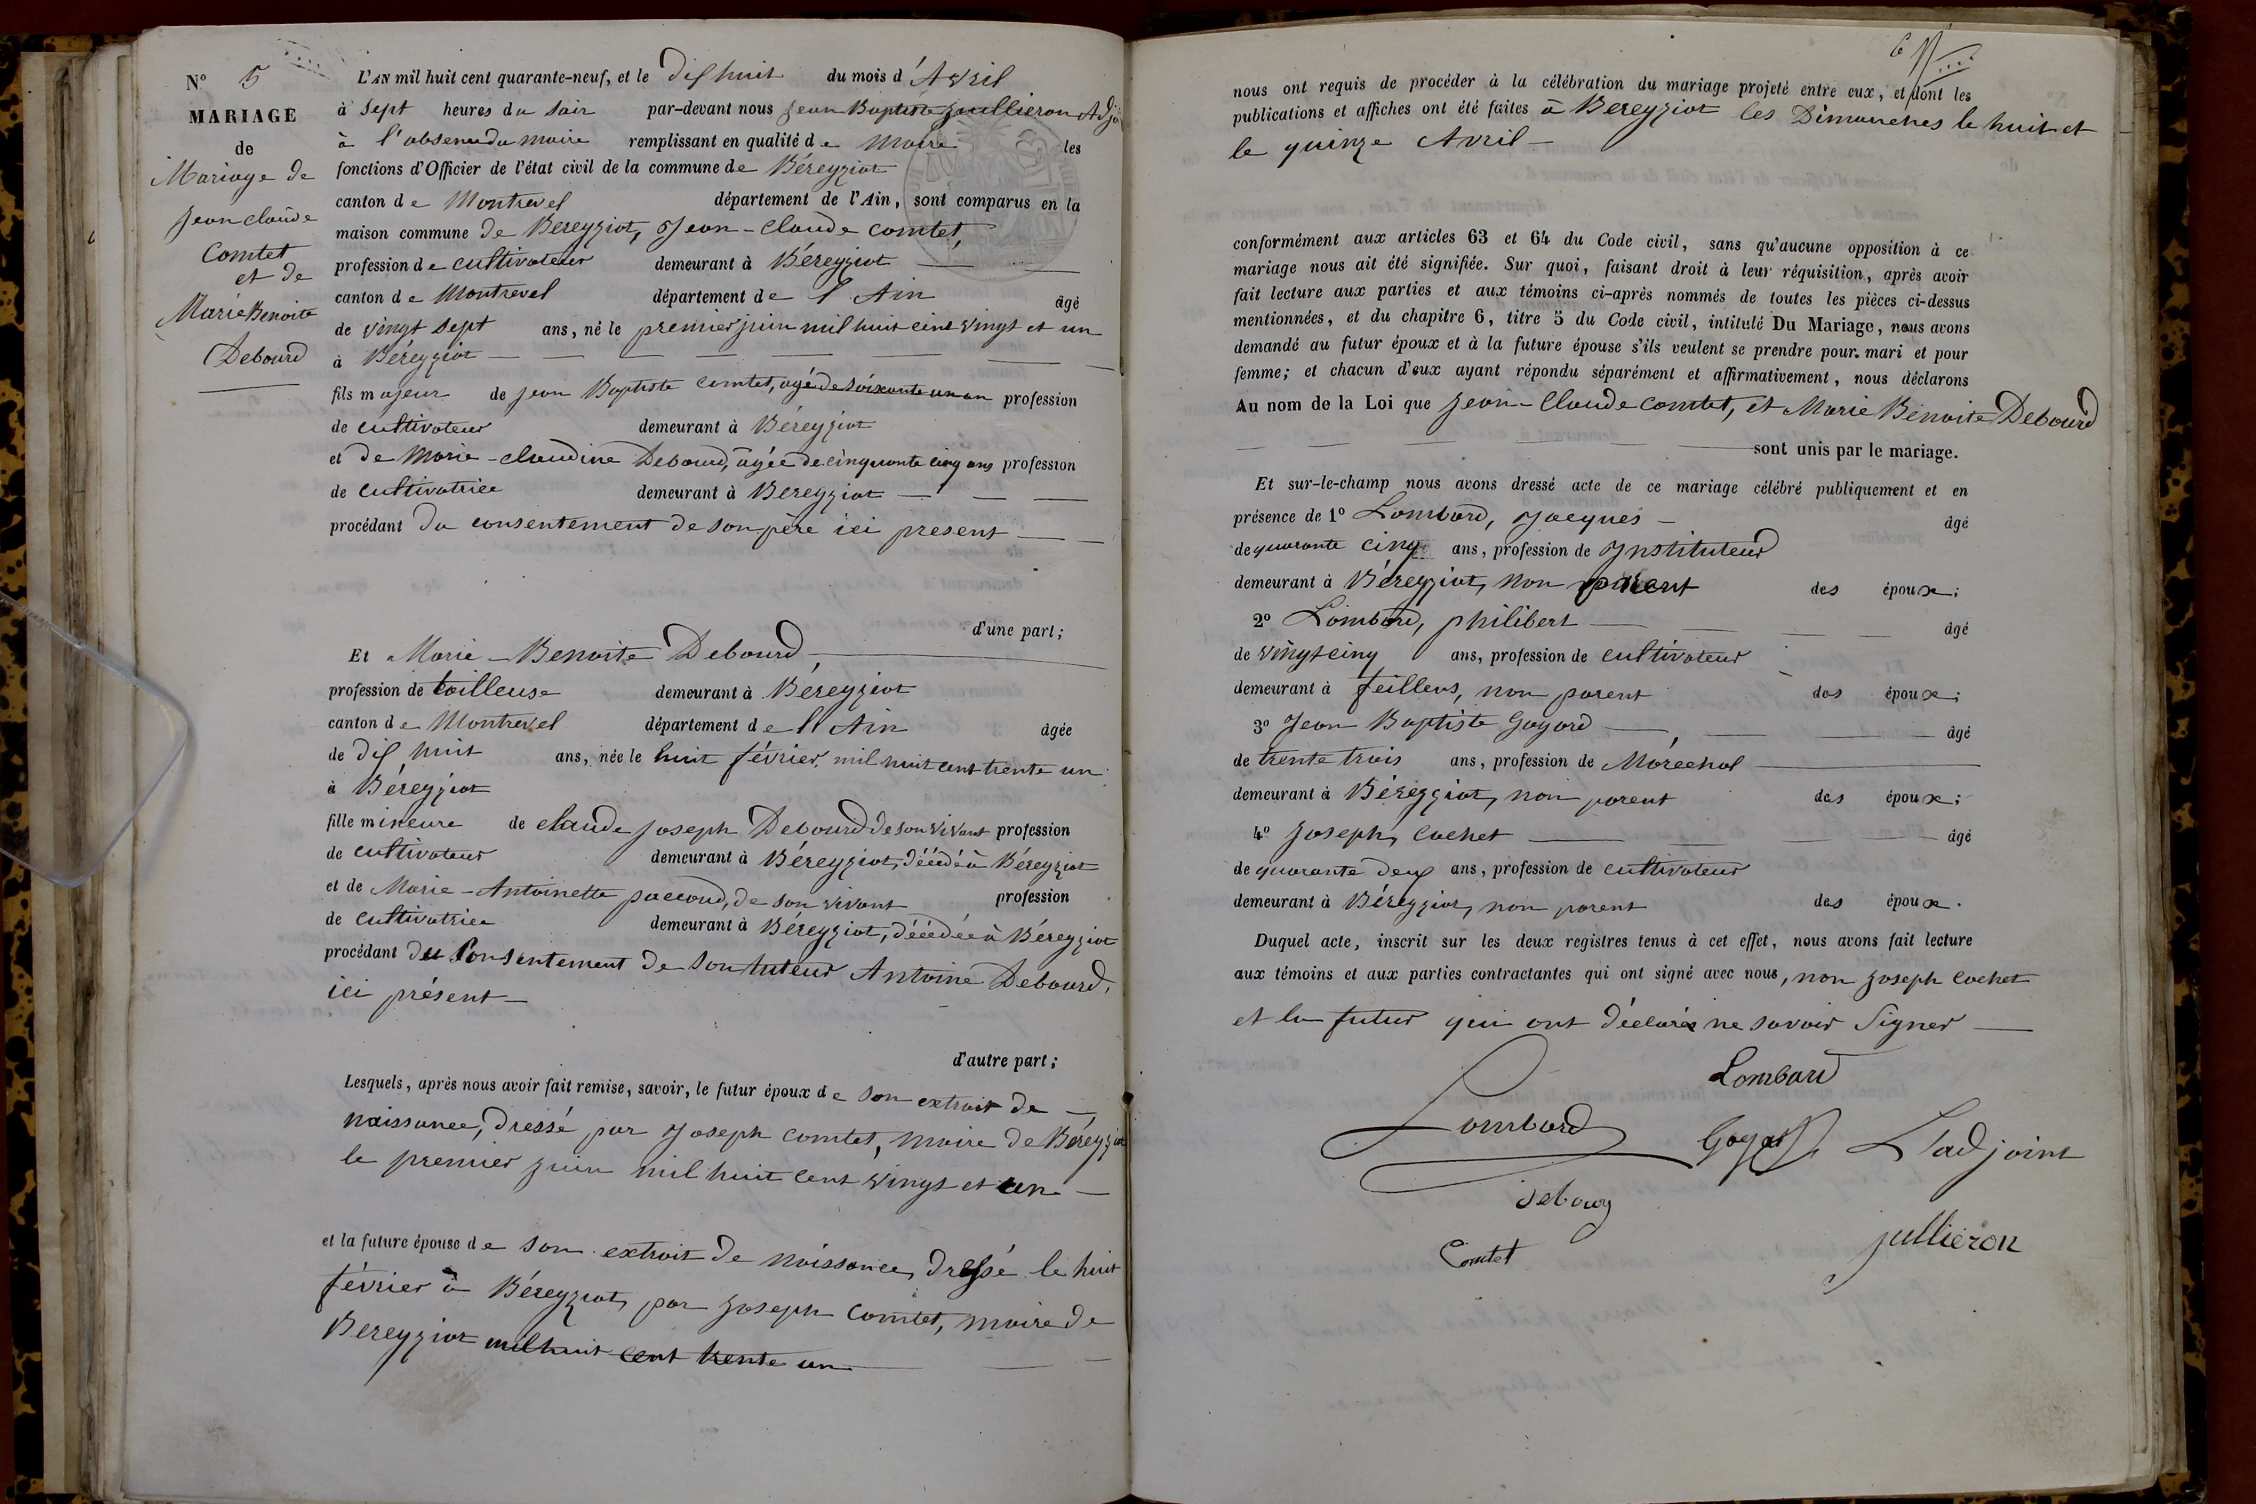 N° 5
MARIAGE
de
Mariage de
Jean claude
Comtet
et de
Marie Benoite
Debourd
L'AN mil huit cent quarante-neuf, et le dix huit du mois d'Avril
à Sept heures du soir par-devant nous Jean Baptiste Jullieron Adjt
à l'absence du maire remplissant en qualité de Maire les
fonctions d'Officier de l'état civil de la commune de Béreyziat
canton de Montrevel département de l'Ain, sont comparus en la
maison commune de Bereyziat, Jean-Claude Comtet,
profession de cultivateur demeurant à Béreyziat
canton de Montrevel département de l'Ain âgé
de vingt sept ans, né le premier juin mil huit cent vingt et un
à Béreyziat
fils majeur de jean Baptiste Comtet, agé de soixante un an profession
de cultivateur demeurant à Béreyziat
et de Marie-claudine Debourd, agée de cinquante cinq ans profession
de cultivatrice demeurant à Béreyziat
procédant du consentement de son père ici present
d'une part;
Et Marie-Benoite Debourd,
profession de tailleuse demeurant à Béreyziat
canton de Montrevel département de l'Ain âgée
de dix huit ans, née le huit février mil huit cent trente un
à Béreyziat
fille mineure de claude joseph Debourd de son vivant profession
de cultivateur demeurant à Béreyziat, décédé à Béreyziat
et de Marie-Antoinette paccoud, de son vivant profession
de cultivatrice demeurant à Béreyziat, décédée à Béreyziat
procédant du Consentement de son tuteur Antoine Debourd,
ici présent
d'autre part;
Lesquels, après nous avoir fait remise, savoir, le futur époux de son extrait de
naissance, dressé par Joseph Comtet, maire de Béreyziat
le premier juin mil huit cent vingt et un
et la future épouse de son extrait de naissance, dressé le huit
février à Béreyziat, par Joseph Comtet, maire de
Bereyziat mil huit cent trente un
6
nous ont requis de procéder à la célébration du mariage projeté entre eux, et dont les
publications et affiches ont été faites à Bereyziat les Dimanches le huit et
le quinze Avril
conformément aux articles 63 et 64 du Code civil, sans qu'aucune opposition à ce
mariage nous ait été signifiée. Sur quoi, faisant droit à leur réquisition, après avoir
fait lecture aux parties et aux témoins ci-après nommés de toutes les pièces ci-dessus
mentionnées, et du chapitre 6, titre 5 du Code civil, intitulé Du Mariage, nous avons
demandé au futur époux et à la future épouse s'ils veulent se prendre pour mari et pour
femme; et chacun d'eux ayant répondu séparément et affirmativement, nous déclarons
Au nom de la Loi que Jean-Claude Comtet, et Marie Benoite Debourd
sont unis par le mariage.
Et sur-le-champ nous avons dressé acte de ce mariage célébré publiquement et en
présence de 1° Lombard, Jacques âgé
de quarante cinq ans, profession de Instituteur
demeurant à Béreyziat, non parent des époux;
2° Lombard, philibert âgé
de vingt cinq ans, profession de cultivateur
demeurant à feillens, non parent des époux;
3° Jean Baptiste Goyard, âgé
de trente trois ans, profession de Maréchal
demeurant à Béreyziat, non parent des époux;
4° Joseph Cochet âgé
de quarante deux ans, profession de cultivateur
demeurant à Béreyziat, non parent des époux.
Duquel acte, inscrit sur les deux registres tenus à cet effet, nous avons fait lecture
aux témoins et aux parties contractantes qui ont signé avec nous, non Joseph Cochet
et la futur qui ont déclaré ne savoir Signer
Lombard
Lombard Goyard L'adjoint
debourg
Comtet Jullieron